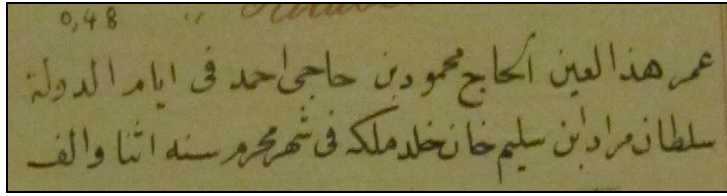 0,48 "
عمر هذا العين الحاج محمود بن حاجى احمد فى ايام الدولة
سلطان مراد ابن سليم خان خلد ملكه فى شهر محرم سنه اثنا والف